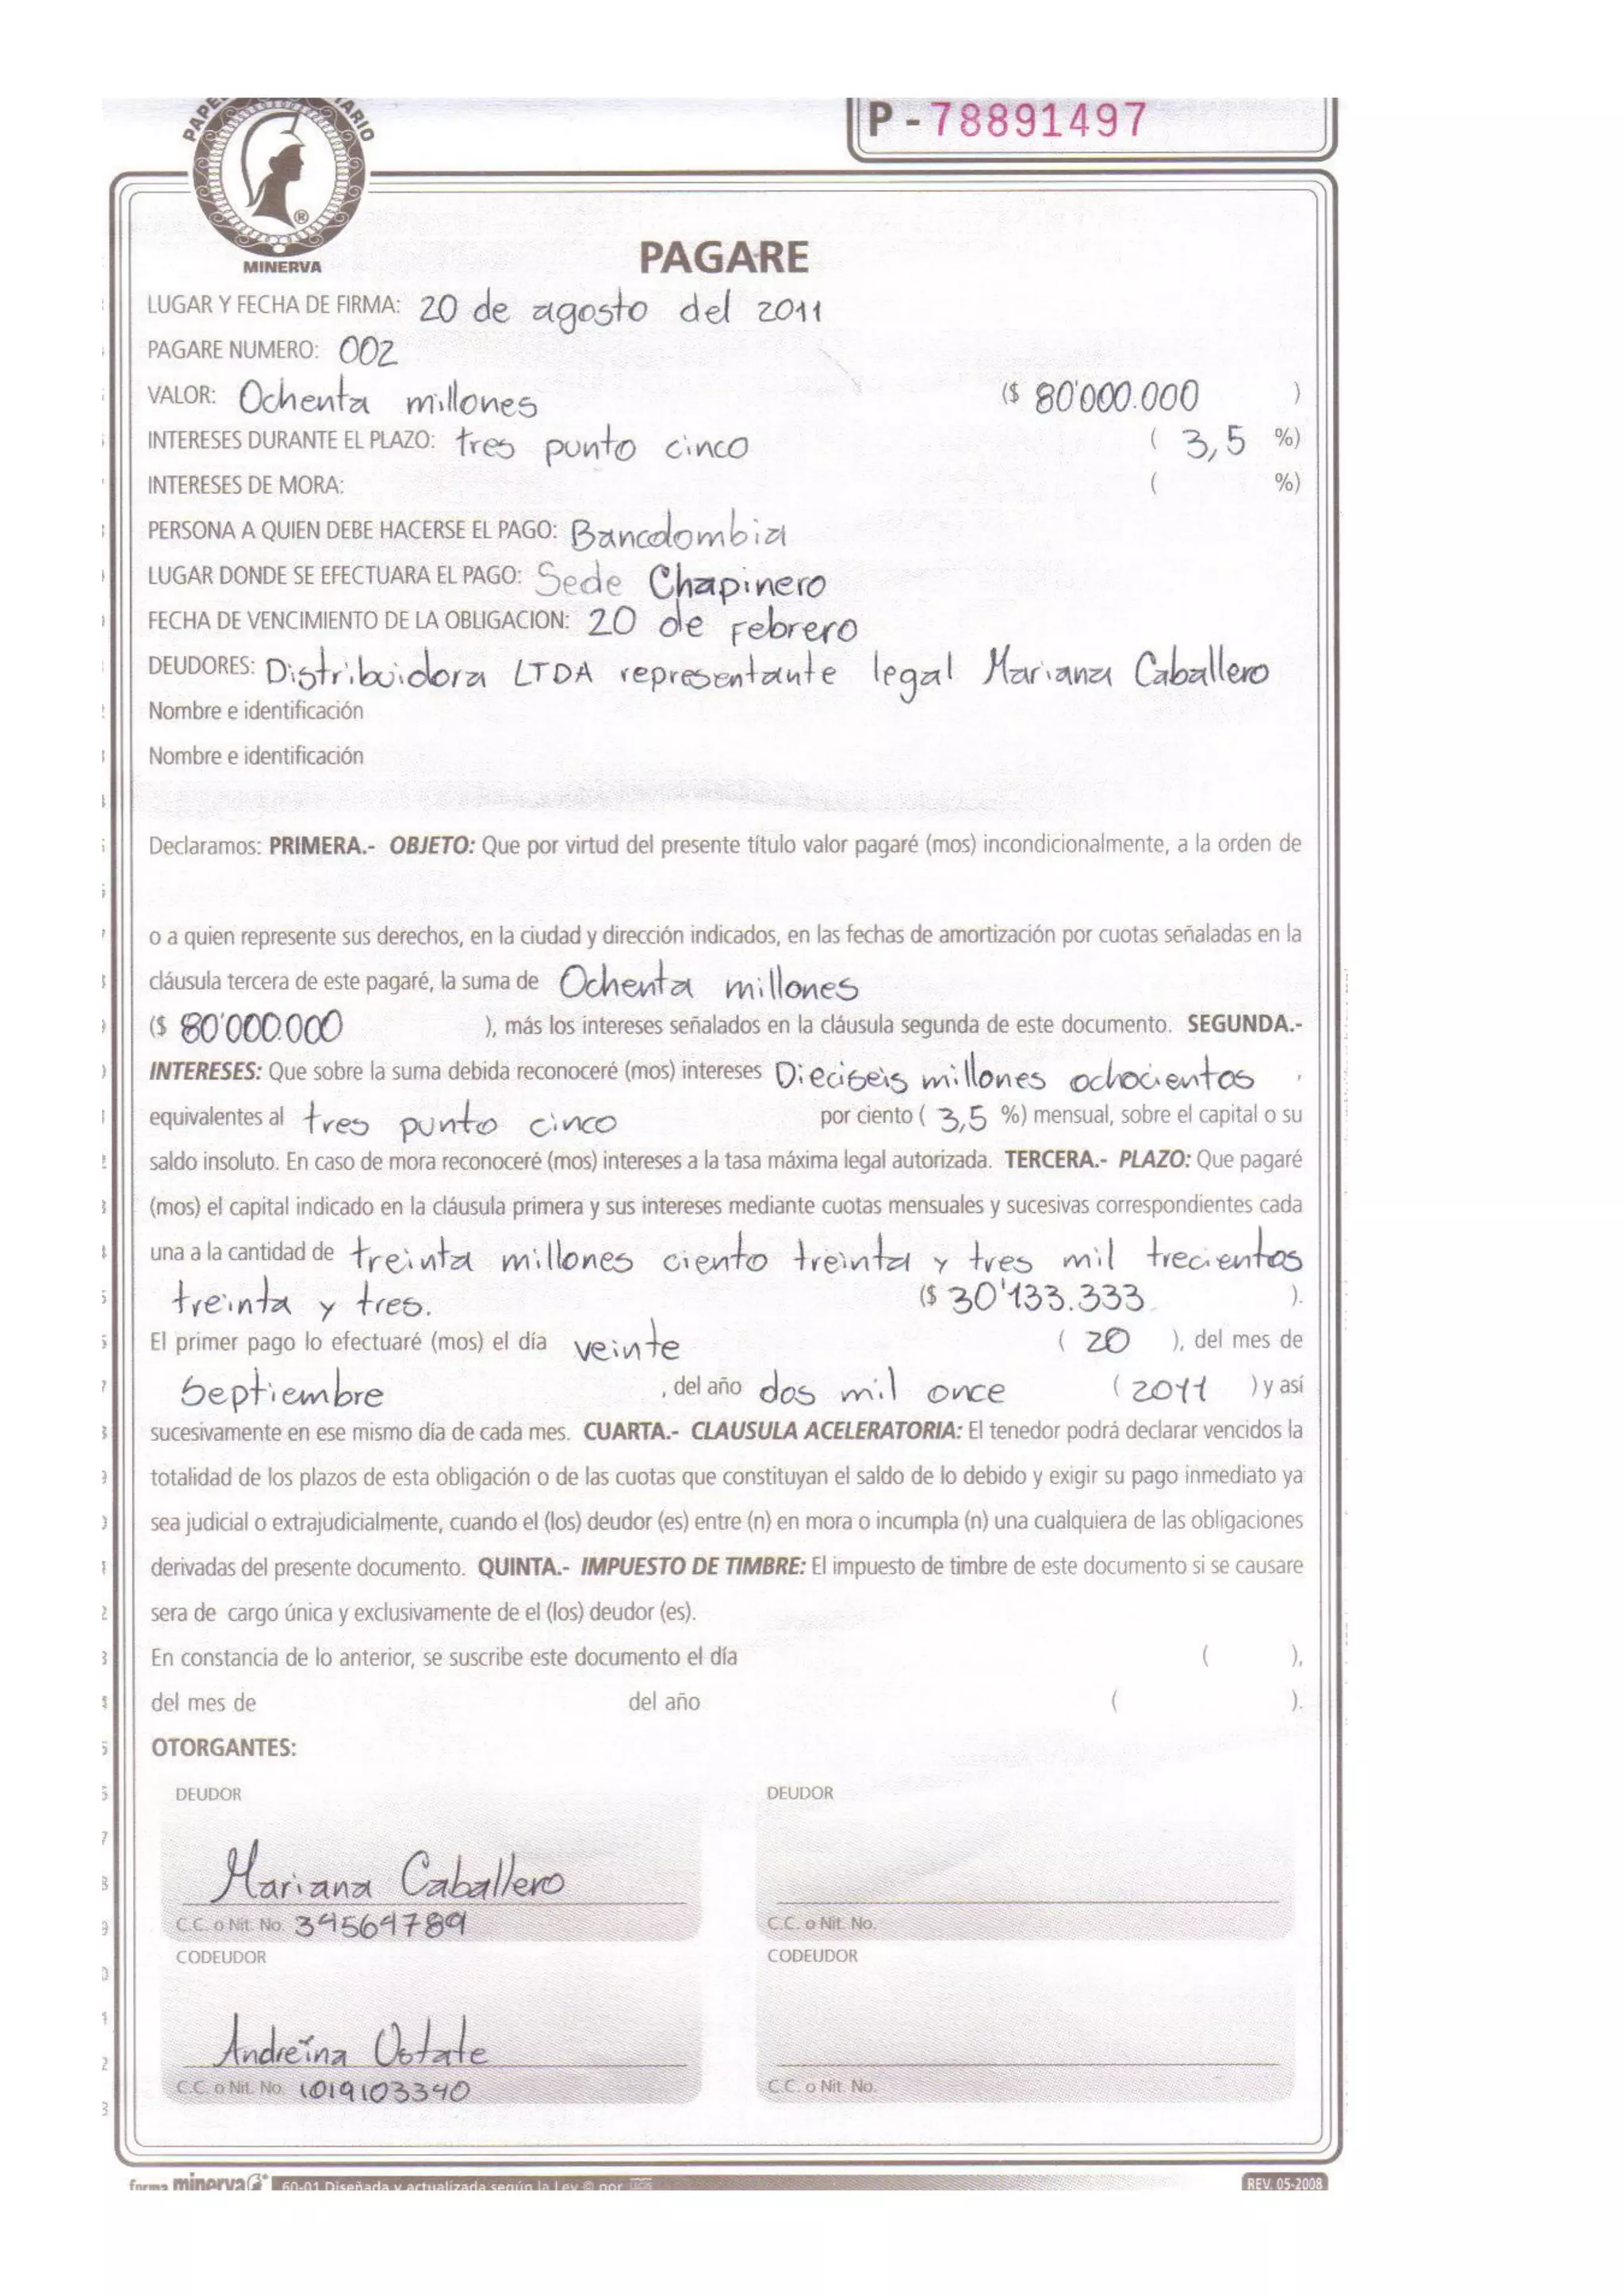 PAPEL
IARIO
MINERVA
P - 78891497
PAGARE
LUGAR Y FECHA DE FIRMA: 20 de agosto del 2011
PAGARE NUMERO: 002
VALOR: Ochenta millones ($ 80'000.000 )
INTERESES DURANTE EL PLAZO: tres punto cinco ( 3,5 %)
INTERESES DE MORA: ( %)
PERSONA A QUIEN DEBE HACERSE EL PAGO: Bancolombia
LUGAR DONDE SE EFECTUARA EL PAGO: Sede Chapinero
FECHA DE VENCIMIENTO DE LA OBLIGACION: 20 de Febrero
DEUDORES: Distribuidora LTDA representante legal Mariana Caballero
Nombre e identificación
Nombre e identificación
Declaramos: PRIMERA.- OBJETO: Que por virtud del presente título valor pagaré (mos) incondicionalmente, a la orden de
o a quien represente sus derechos, en la ciudad y dirección indicados, en las fechas de amortización por cuotas señaladas en la
cláusula tercera de este pagaré, la suma de Ochenta millones
($ 80'000.000 ), más los intereses señalados en la cláusula segunda de este documento. SEGUNDA.-
INTERESES: Que sobre la suma debida reconoceré (mos) intereses Dieciseis millones ochocientos ,
equivalentes al tres punto cinco por ciento ( 3,5 %) mensual, sobre el capital o su
saldo insoluto. En caso de mora reconoceré (mos) intereses a la tasa máxima legal autorizada. TERCERA.- PLAZO: Que pagaré
(mos) el capital indicado en la cláusula primera y sus intereses mediante cuotas mensuales y sucesivas correspondientes cada
una a la cantidad de treinta millones ciento treinta y tres mil trecientos
treinta y tres. ($ 30'133.333 ).
El primer pago lo efectuaré (mos) el día veinte ( 20 ), del mes de
Septiembre , del año dos mil once ( 2011 ) y así
sucesivamente en ese mismo día de cada mes. CUARTA.- CLAUSULA ACELERATORIA: El tenedor podrá declarar vencidos la
totalidad de los plazos de esta obligación o de las cuotas que constituyan el saldo de lo debido y exigir su pago inmediato ya
sea judicial o extrajudicialmente, cuando el (los) deudor (es) entre (n) en mora o incumpla (n) una cualquiera de las obligaciones
derivadas del presente documento. QUINTA.- IMPUESTO DE TIMBRE: El impuesto de timbre de este documento si se causare
sera de cargo única y exclusivamente de el (los) deudor (es).
En constancia de lo anterior, se suscribe este documento el día ( ),
del mes de del año ( ).
OTORGANTES:
DEUDOR DEUDOR
Mariana Caballero
C.C. o Nit. No. 34564789 C.C. o Nit. No.
CODEUDOR CODEUDOR
Andreina Ostate
C.C. o Nit. No. 1019103340 C.C. o Nit. No.
forma minerva 60-01 Diseñada y actualizada según la Ley © por REV. 05-2008